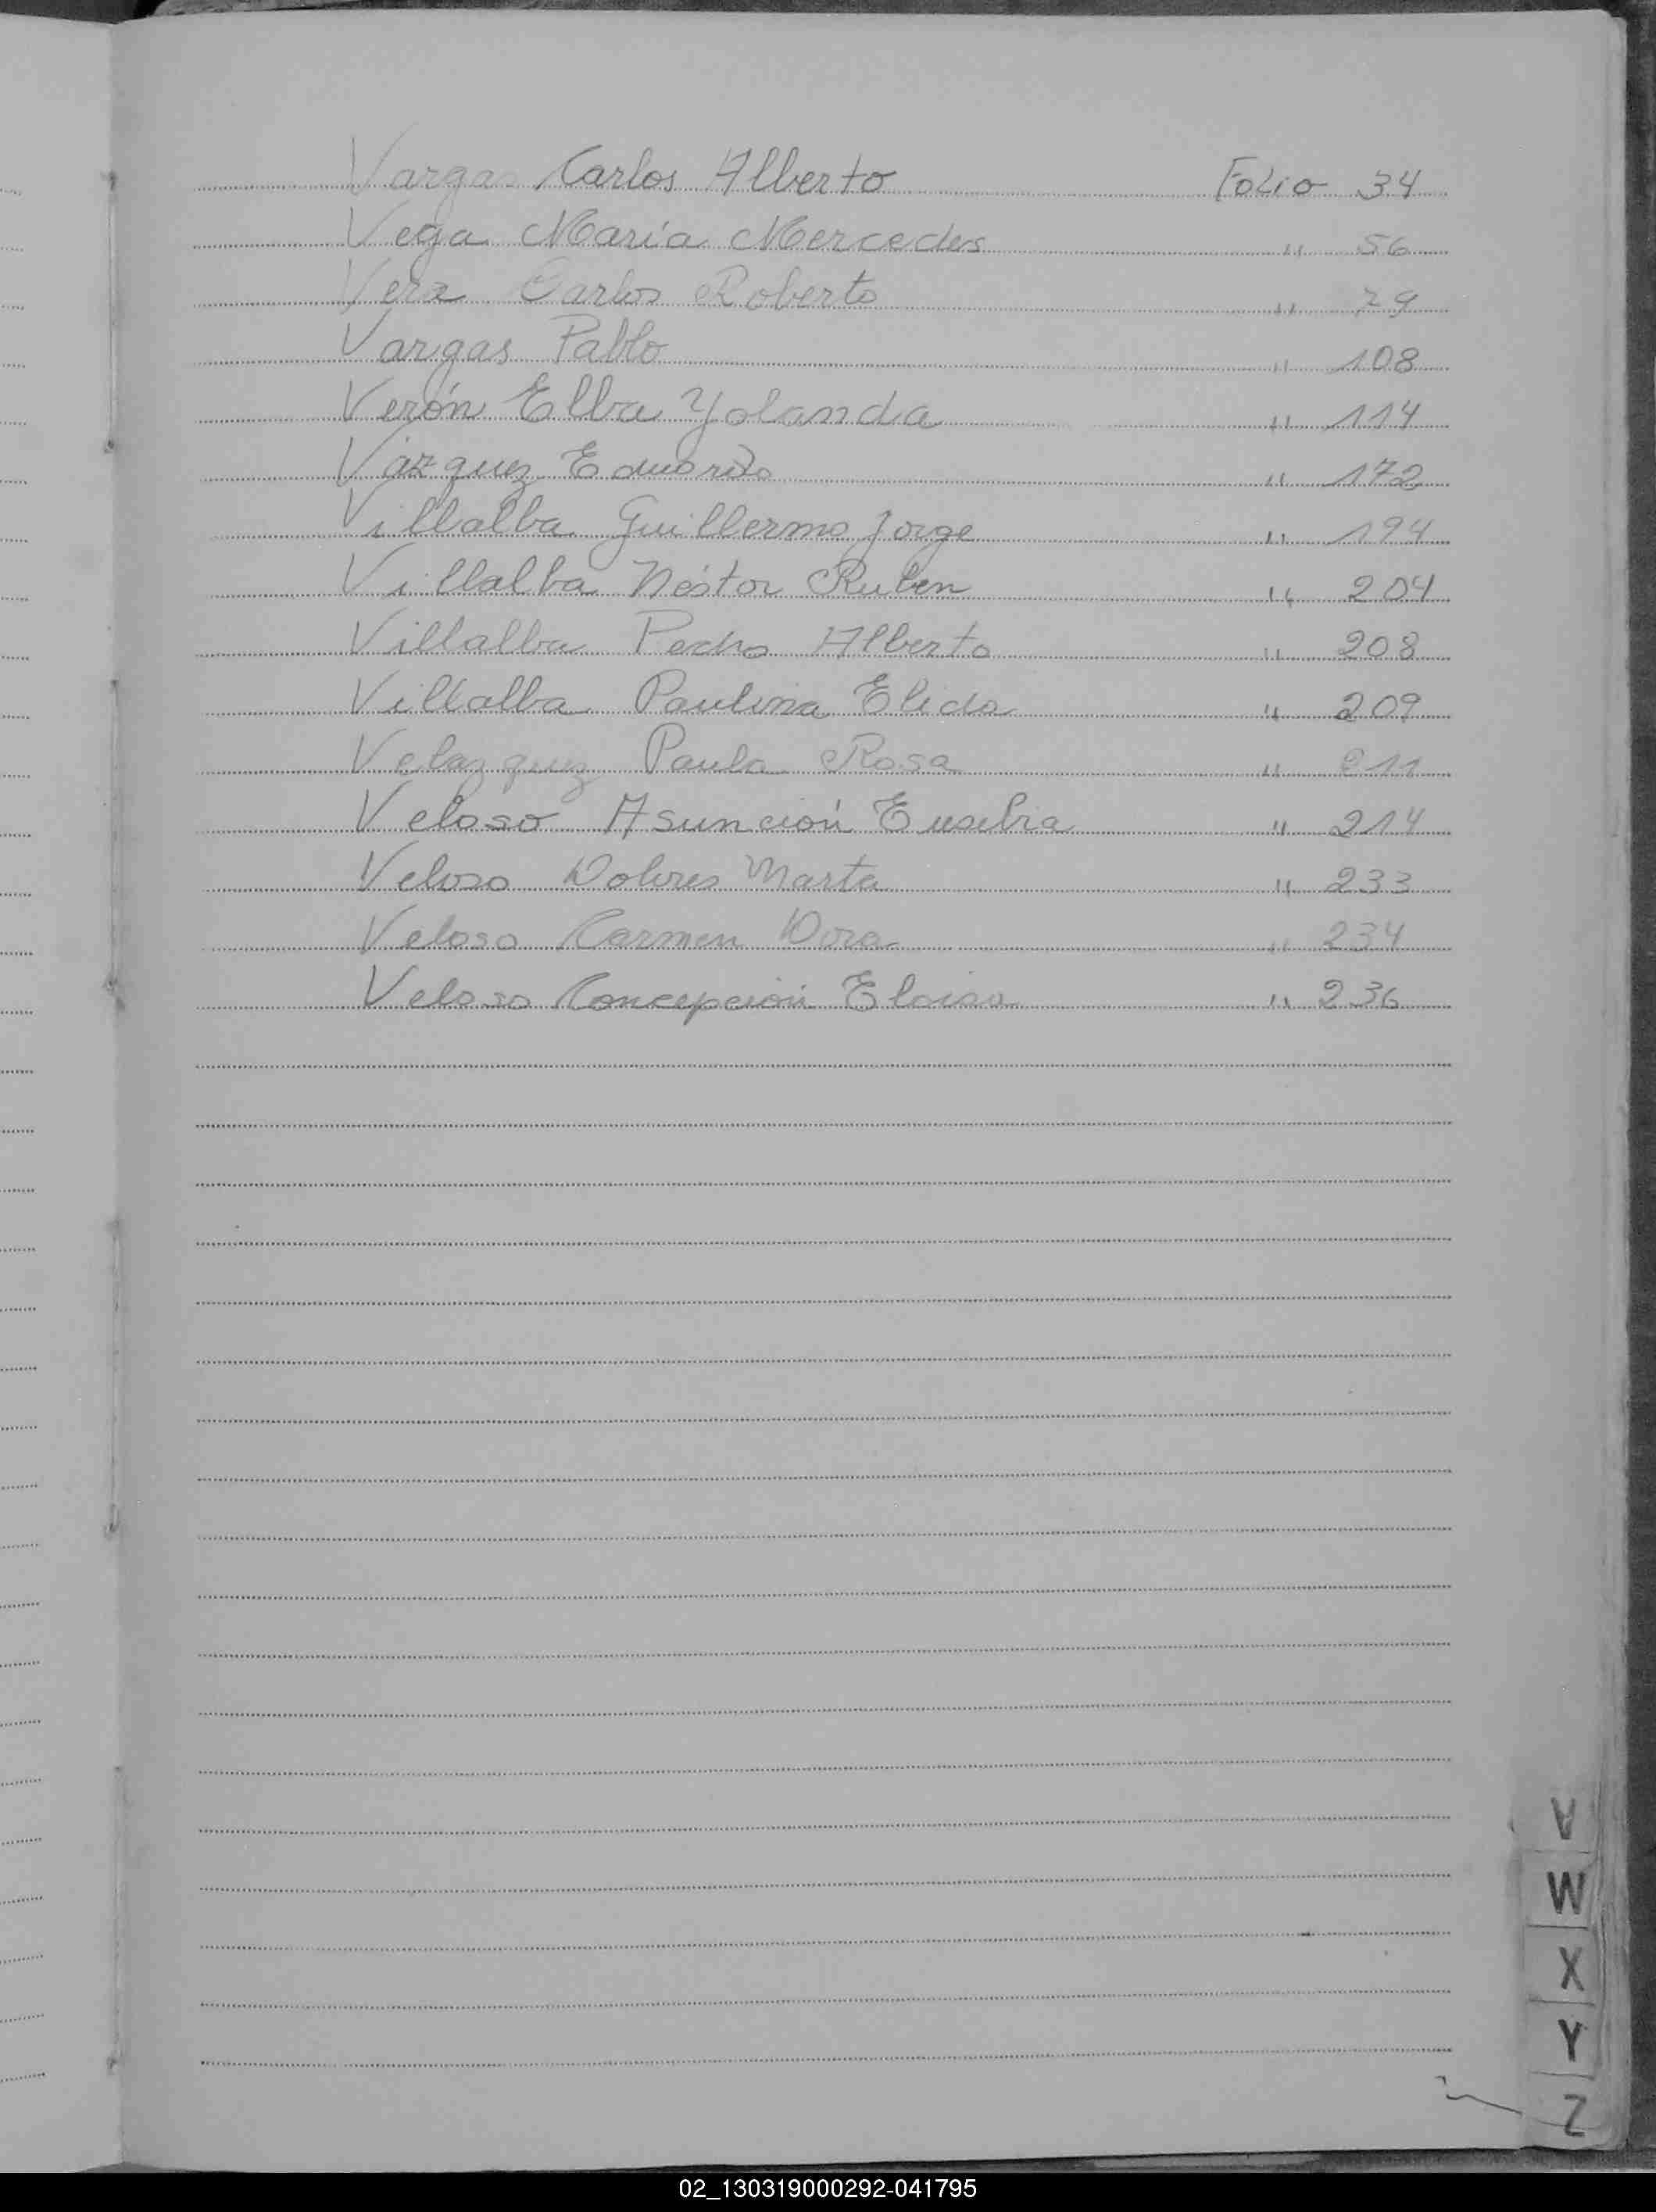 Vargas Carlos Alberto Folio 34
Vega María Mercedes " 56
Vera Carlos Roberto " 79
Vargas Pablo " 108
Verón Elba Yolanda " 114
Vázquez Eduardo " 172
Villalba Guillermo Jorge " 194
Villalba Néstor Ruben " 204
Villalba Pedro Alberto " 208
Villalba Paulina Elida " 209
Velazquez Paula Rosa " 211
Veloso Asunción Eusebia " 214
Veloso Dolores Marta " 233
Veloso Carmen Dora " 234
Veloso Concepción Eloisa " 236
V
W
X
Y
Z
02_130319000292-041795